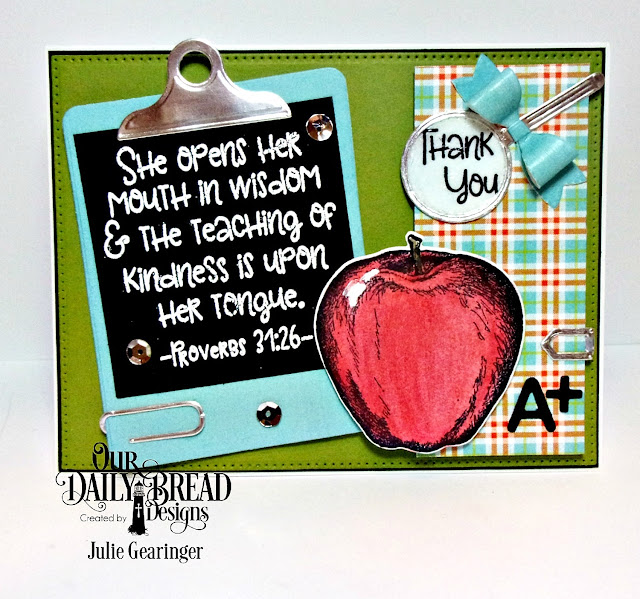 She opens her
mouth in wisdom
& the teaching of
kindness is upon
her tongue.
-Proverbs 31:26-
Thank
You
A+
Our
Daily Bread
Created by Designs
Julie Gearinger